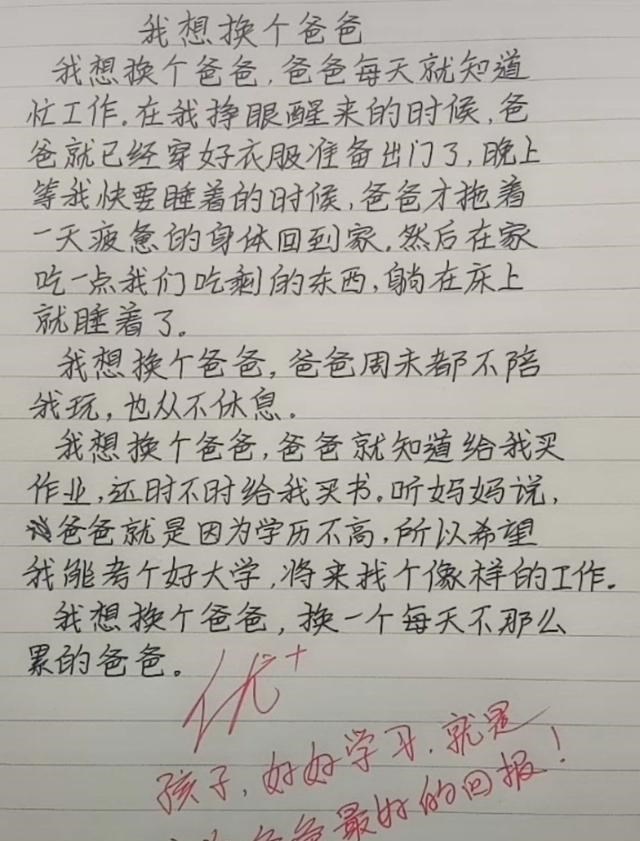 我想换个爸爸
我想换个爸爸,爸爸每天就知道
忙工作.在我挣眼醒来的时候,爸
爸就已经穿好衣服准备出门了,晚上
等我快要睡着的时候,爸爸才拖着
一天疲惫的身体回到家.然后在家
吃一点我们吃剩的东西,躺在床上
就睡着了。
我想换个爸爸,爸爸周末都不陪
我玩,也从不休息.
我想换个爸爸,爸爸就知道给我买
作业,还时不时给我买书.听妈妈说,
爸爸就是因为学历不高,所以希望
我能考个好大学,将来找个像样的工作.
我想换个爸爸,换一个每天不那么
累的爸爸。
优+
孩子,好好学习.就是
爸爸最好的回报!